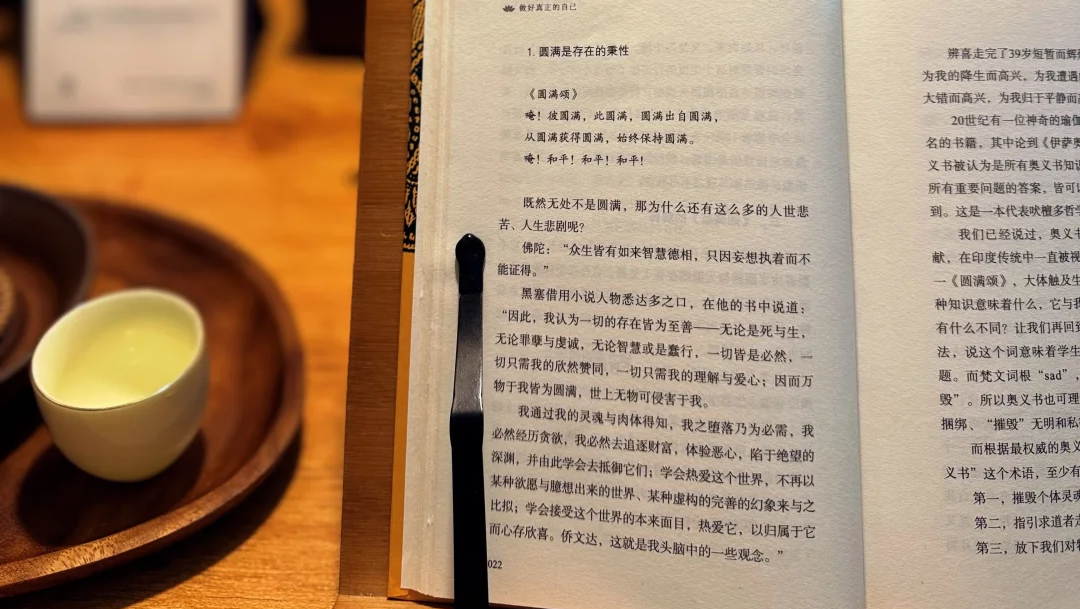 做好真正的自己
1. 圆满是存在的秉性
《圆满颂》
唵！彼圆满，此圆满，圆满出自圆满，
从圆满获得圆满，始终保持圆满。
唵！和平！和平！和平！
既然无处不是圆满，那为什么还有这么多的人世悲
苦、人生悲剧呢？
佛陀：“众生皆有如来智慧德相，只因妄想执着而不
能证得。”
黑塞借用小说人物悉达多之口，在他的书中说道：
“因此，我认为一切的存在皆为至善——无论是死与生，
无论罪孽与虔诚，无论智慧或是蠢行，一切皆是必然，一
切只需我的欣然赞同，一切只需我的理解与爱心；因而万
物于我皆为圆满，世上无物可侵害于我。
我通过我的灵魂与肉体得知，我之堕落乃为必需，我
必然经历贪欲，我必然去追逐财富，体验恶心，陷于绝望的
深渊，并由此学会去抵御它们；学会热爱这个世界，不再以
某种欲愿与臆想出来的世界、某种虚构的完善的幻象来与之
比拟；学会接受这个世界的本来面目，热爱它，以归属于它
而心存欣喜。侨文达，这就是我头脑中的一些观念。”
022
辨喜走完了39岁短暂而辉
为我的降生而高兴，为我遭遇
大错而高兴，为我归于平静而
20世纪有一位神奇的瑜伽
名的书籍，其中论到《伊萨奥
义书被认为是所有奥义书知识
所有重要问题的答案，皆可
到。这是一本代表吠檀多哲学
我们已经说过，奥义书
献，在印度传统中一直被视
一《圆满颂》，大体触及生
种知识意味着什么，它与我
有什么不同？让我们再回到
法，说这个词意味着学生
题。而梵文词根“sad”，
毁”。所以奥义书也可理
捆绑、“摧毁”无明和私
而根据最权威的奥义
义书”这个术语，至少有
第一，摧毁个体灵魂
第二，指引求道者走
第三，放下我们对